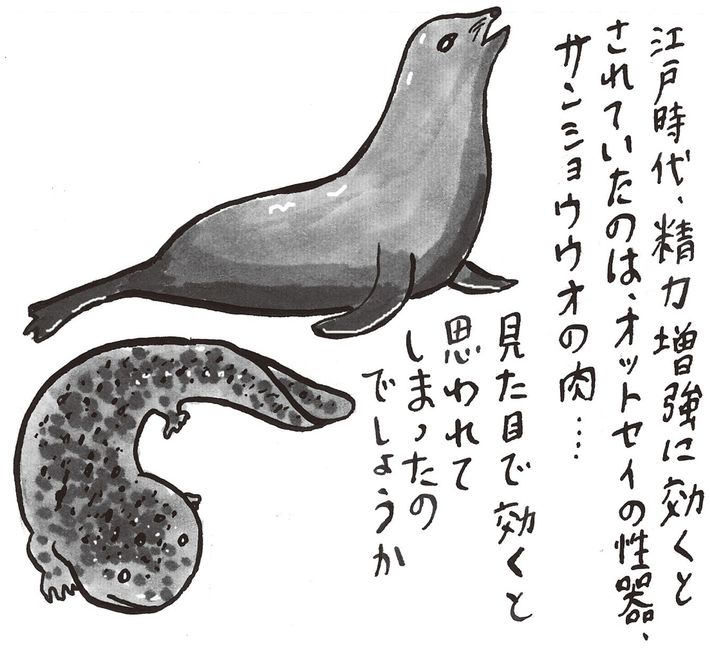 江戸時代、精力増強に効くと
されていたのは、オットセイの性器、
サンショウウオの肉…
見た目で効くと
思われて
しまったの
でしょうか